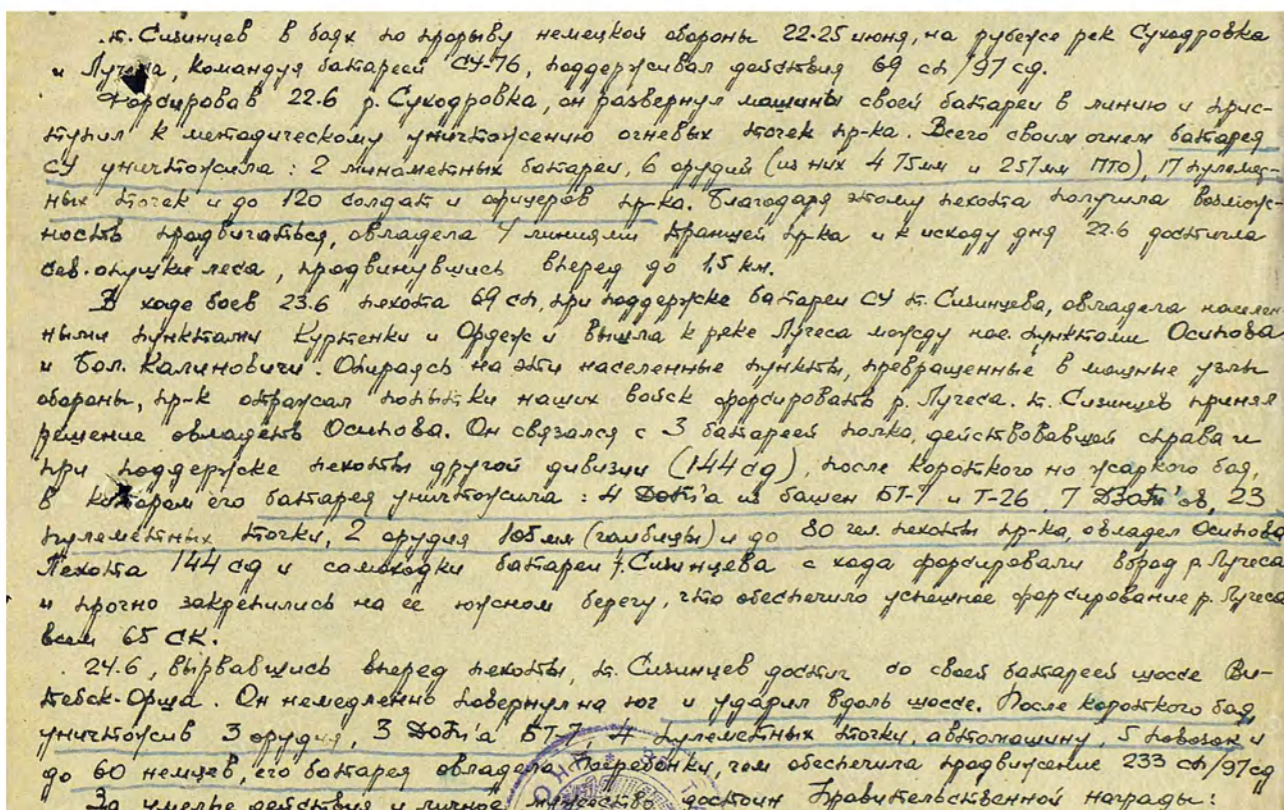 .т. Сизинцев в боях по прорыву немецкой обороны 22-25 июня, на рубеже рек Суходровка
и Лучеса, командуя батареей СУ-76, поддерживал действия 69 сп/97 сд.
Форсировав 22.6 р. Суходровка, он развернул машины своей батареи в линию и прис-
тупил к методическому уничтожению огневых точек пр-ка. Всего своим огнем батарея
СУ уничтожила: 2 минометных батареи, 6 орудий (из них 4 75мм и 2 57мм ПТО), 17 пулемет-
ных точек и до 120 солдат и офицеров пр-ка. Благодаря этому пехота получила возмож-
ность продвигаться, овладела 4 линиями траншей пр-ка и к исходу дня 22.6 достигла
сев. опушки леса, продвинувшись вперед до 1,5 км.
В ходе боев 23.6 пехота 69 сп, при поддержке батареи СУ т. Сизинцева, овладела населен-
ными пунктами Куртенки и Ордеж и вышла к реке Лучеса между нас. пунктами Осипова
и Бол. Калиновичи. Опираясь на эти населенные пункты, превращенные в мощные узлы
обороны, пр-к отражал попытки наших войск форсировать р. Лучеса. т. Сизинцев принял
решение овладеть Осипова. Он связался с 3 батареей полка, действовавшей справа и
при поддержке пехоты другой дивизии (144 сд), после короткого но жаркого боя,
в котором его батарея уничтожила: 4 ДОТ'а из башен БТ-7 и Т-26, 7 ДЗОТ'ов, 23
пулеметных точки, 2 орудия 105мм (гаубицы) и до 80 чел. пехоты пр-ка, овладел Осипова
Пехота 144 сд и самоходки батареи т. Сизинцева с хода форсировали вброд р. Лучеса
и прочно закрепились на ее южном берегу, что обеспечило успешное форсирование р. Лучеса
всем 65 СК.
24.6, вырвавшись вперед пехоты, т. Сизинцев достиг со своей батареей шоссе Ви-
тебск-Орша. Он немедленно повернул на юг и ударил вдоль шоссе. После короткого боя,
уничтожив 3 орудия, 3 ДОТ'а БТ-7, 4 пулеметных точки, автомашину, 5 повозок и
до 60 немцев, его батарея овладела Погребенки, чем обеспечила продвижение 233 сп/97сд
За умелые действия и личное мужество достоин Правительственной награды: